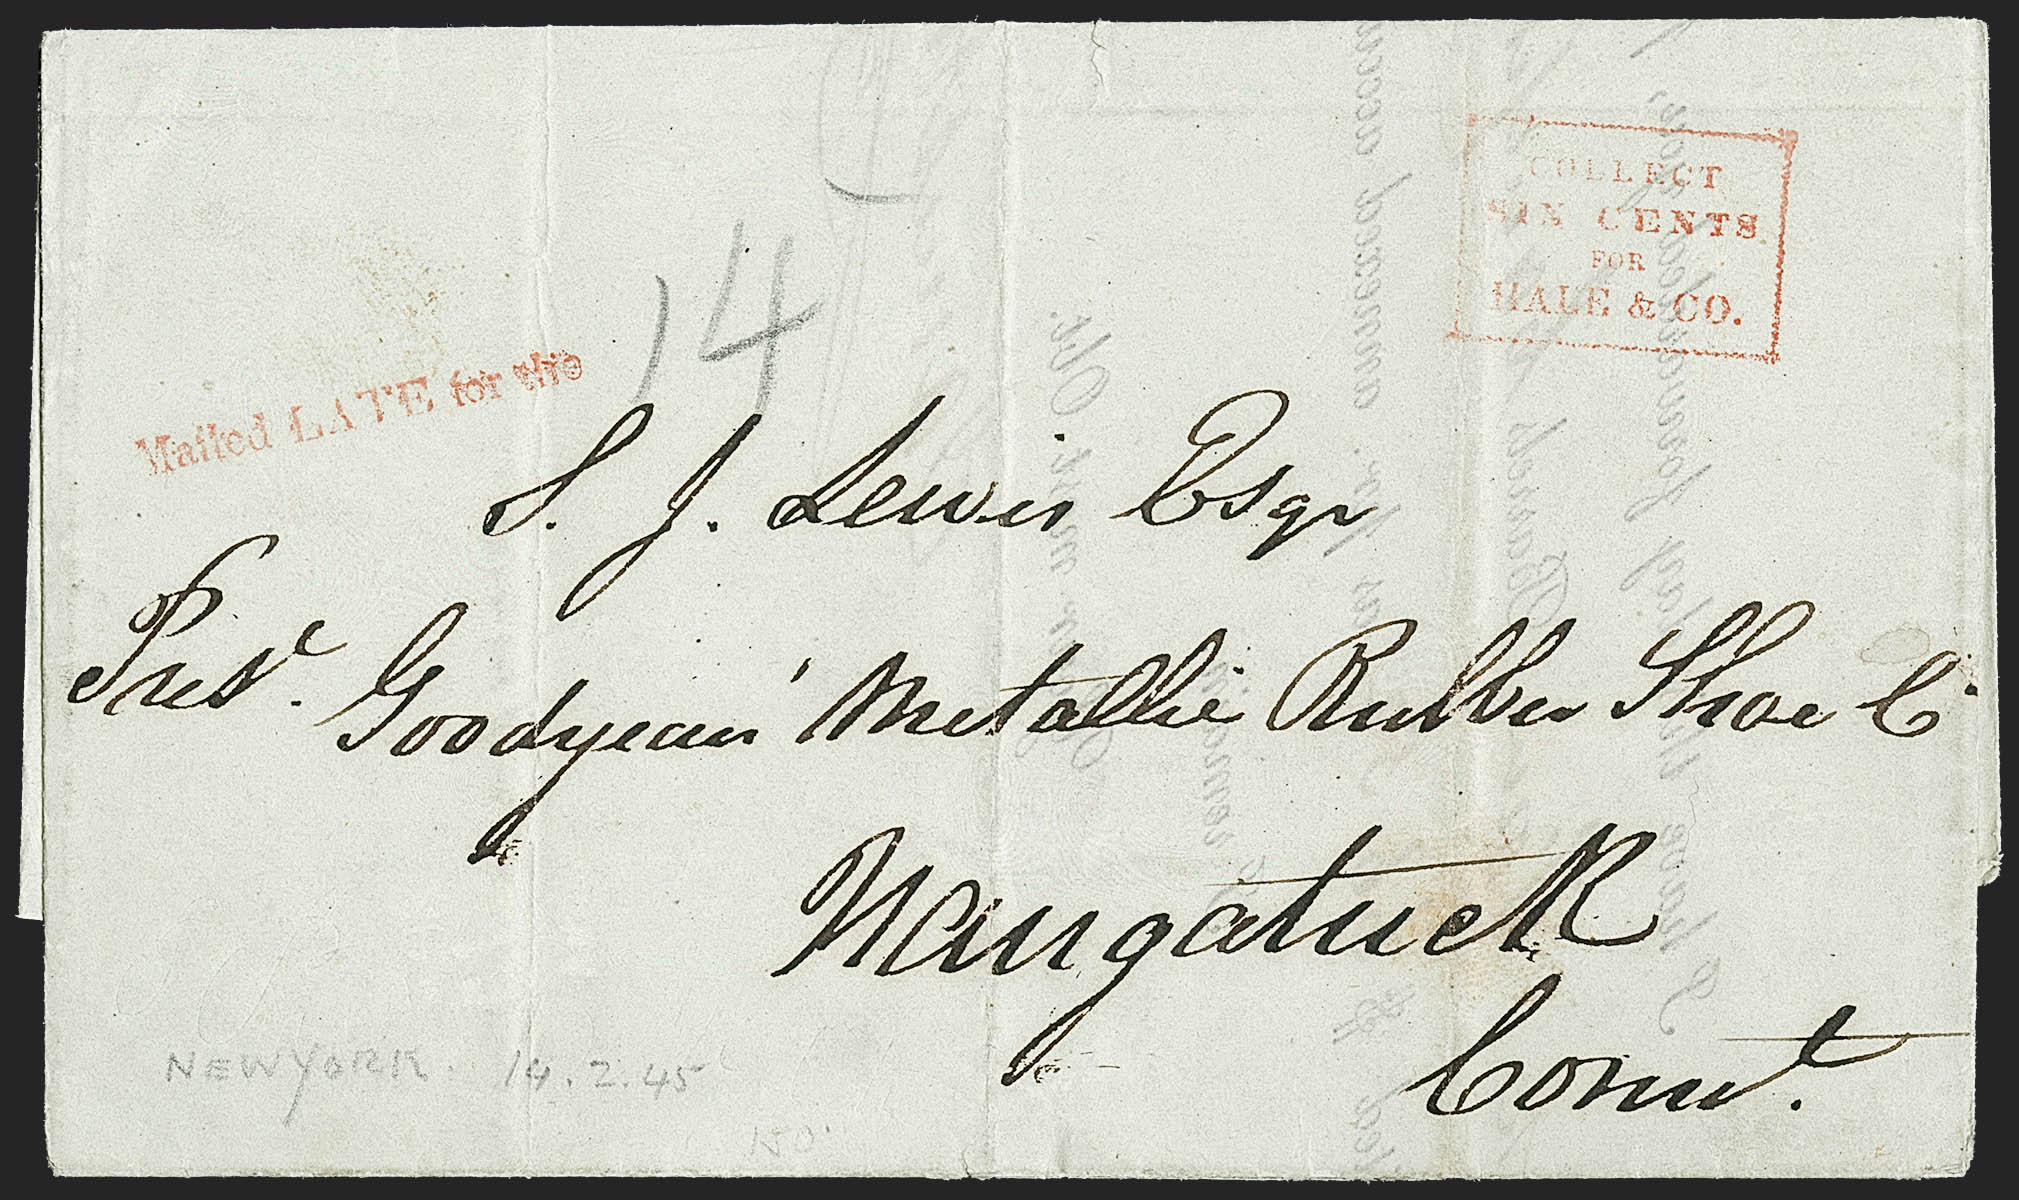 COLLECT
SIX CENTS
FOR
HALE & CO.
14
Mailed LATE for the
S. J. Lewis Esqr
Prest. Goodyear' Metallic Rubber Shoe Co
Naugatuck
Connt.
NEW YORK. 14.2.45